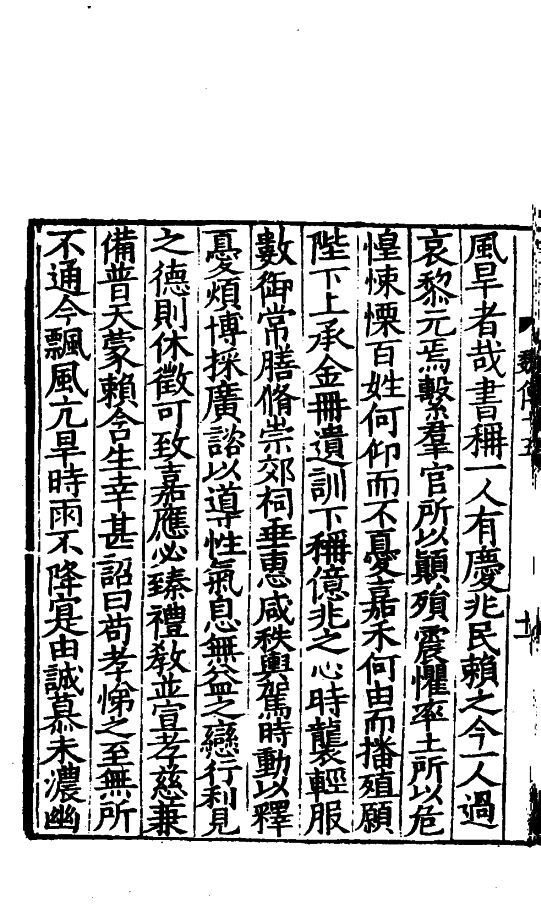 風旱者哉書稱一人有慶兆民賴之今一人過
哀黎元焉繫羣官所以顛殞震懼率土所以危
惶悚慄百姓何仰而不憂嘉禾何由而播殖願
陛下上承金冊遺訓下稱億兆之心時襲輕服
數御常膳脩崇郊祠垂惠咸秩輿駕時動以釋
憂煩博採廣諮以導性氣息無益之戀行利見
之德則休徵可致嘉應必臻禮敎並宣孝慈兼
備普天蒙賴含生幸甚詔曰苟孝悌之至無所
不通今飄風亢旱時雨不降寔由誠慕未濃幽